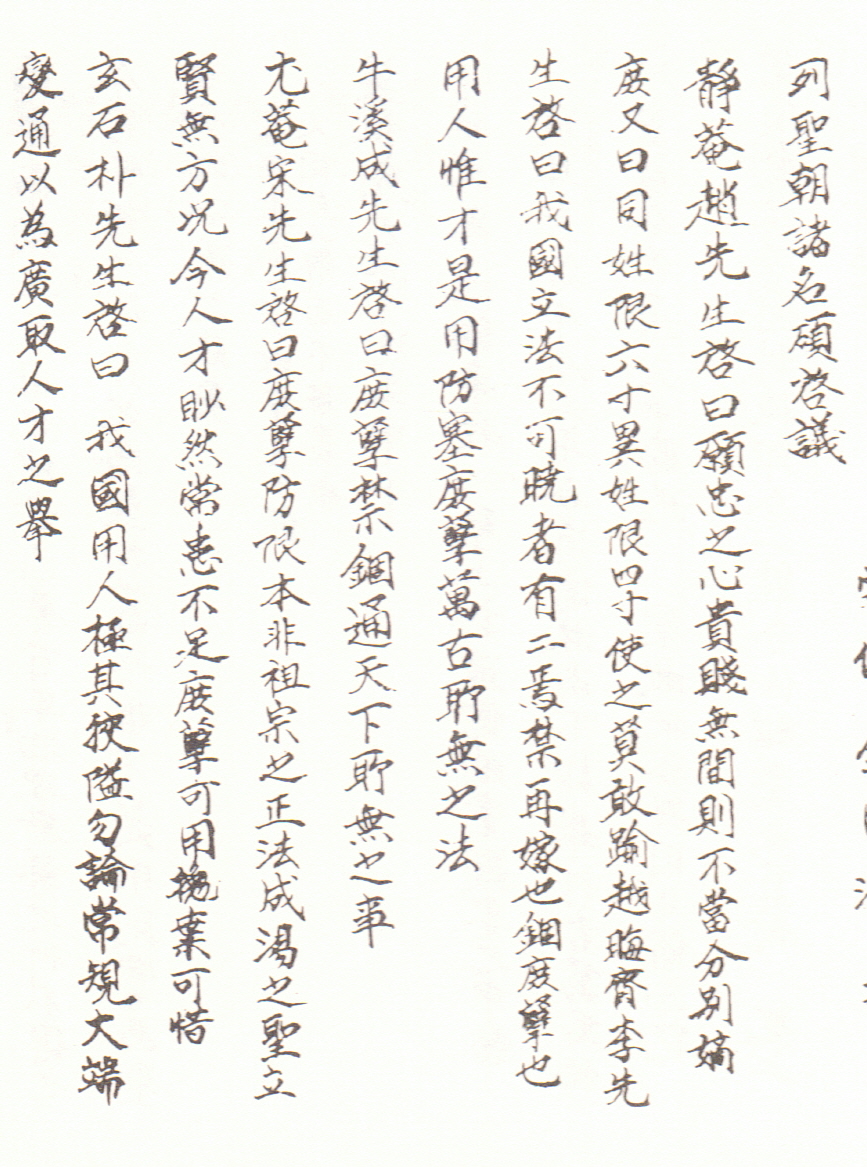 列聖朝諸名碩啓議
靜菴趙先生啓曰願忠之心貴賤無間則不當分別嫡
庶又曰同姓限六寸異姓限四寸使之莫敢踰越晦齋李先
生啓曰我國立法不可曉者有二焉禁再嫁也錮庶孼也
用人惟才是用防塞庶孼萬古所無之法
牛溪成先生啓曰庶孼禁錮通天下所無之事
尤菴宋先生啓曰庶孼防限本非祖宗之正法成湯之聖立
賢無方况今人才眇然常患不足庶孼可用換棄可惜
玄石朴先生啓曰 我國用人極其狹隘勿論常規大端
變通以為廣取人才之擧